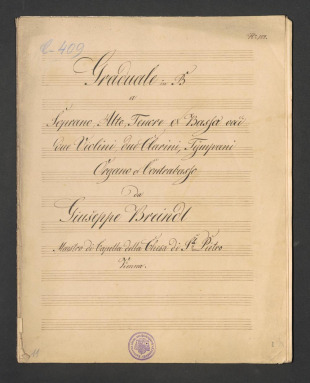 C-409
Graduale in B
a
Soprano Alto, Tenore e Basso
due Violini, due Clarini, Tympani
Organo e Contrabasso
da
Giuseppe Preindl
Maestro di Capella della Chiesa di St. Pietro
Vienna.